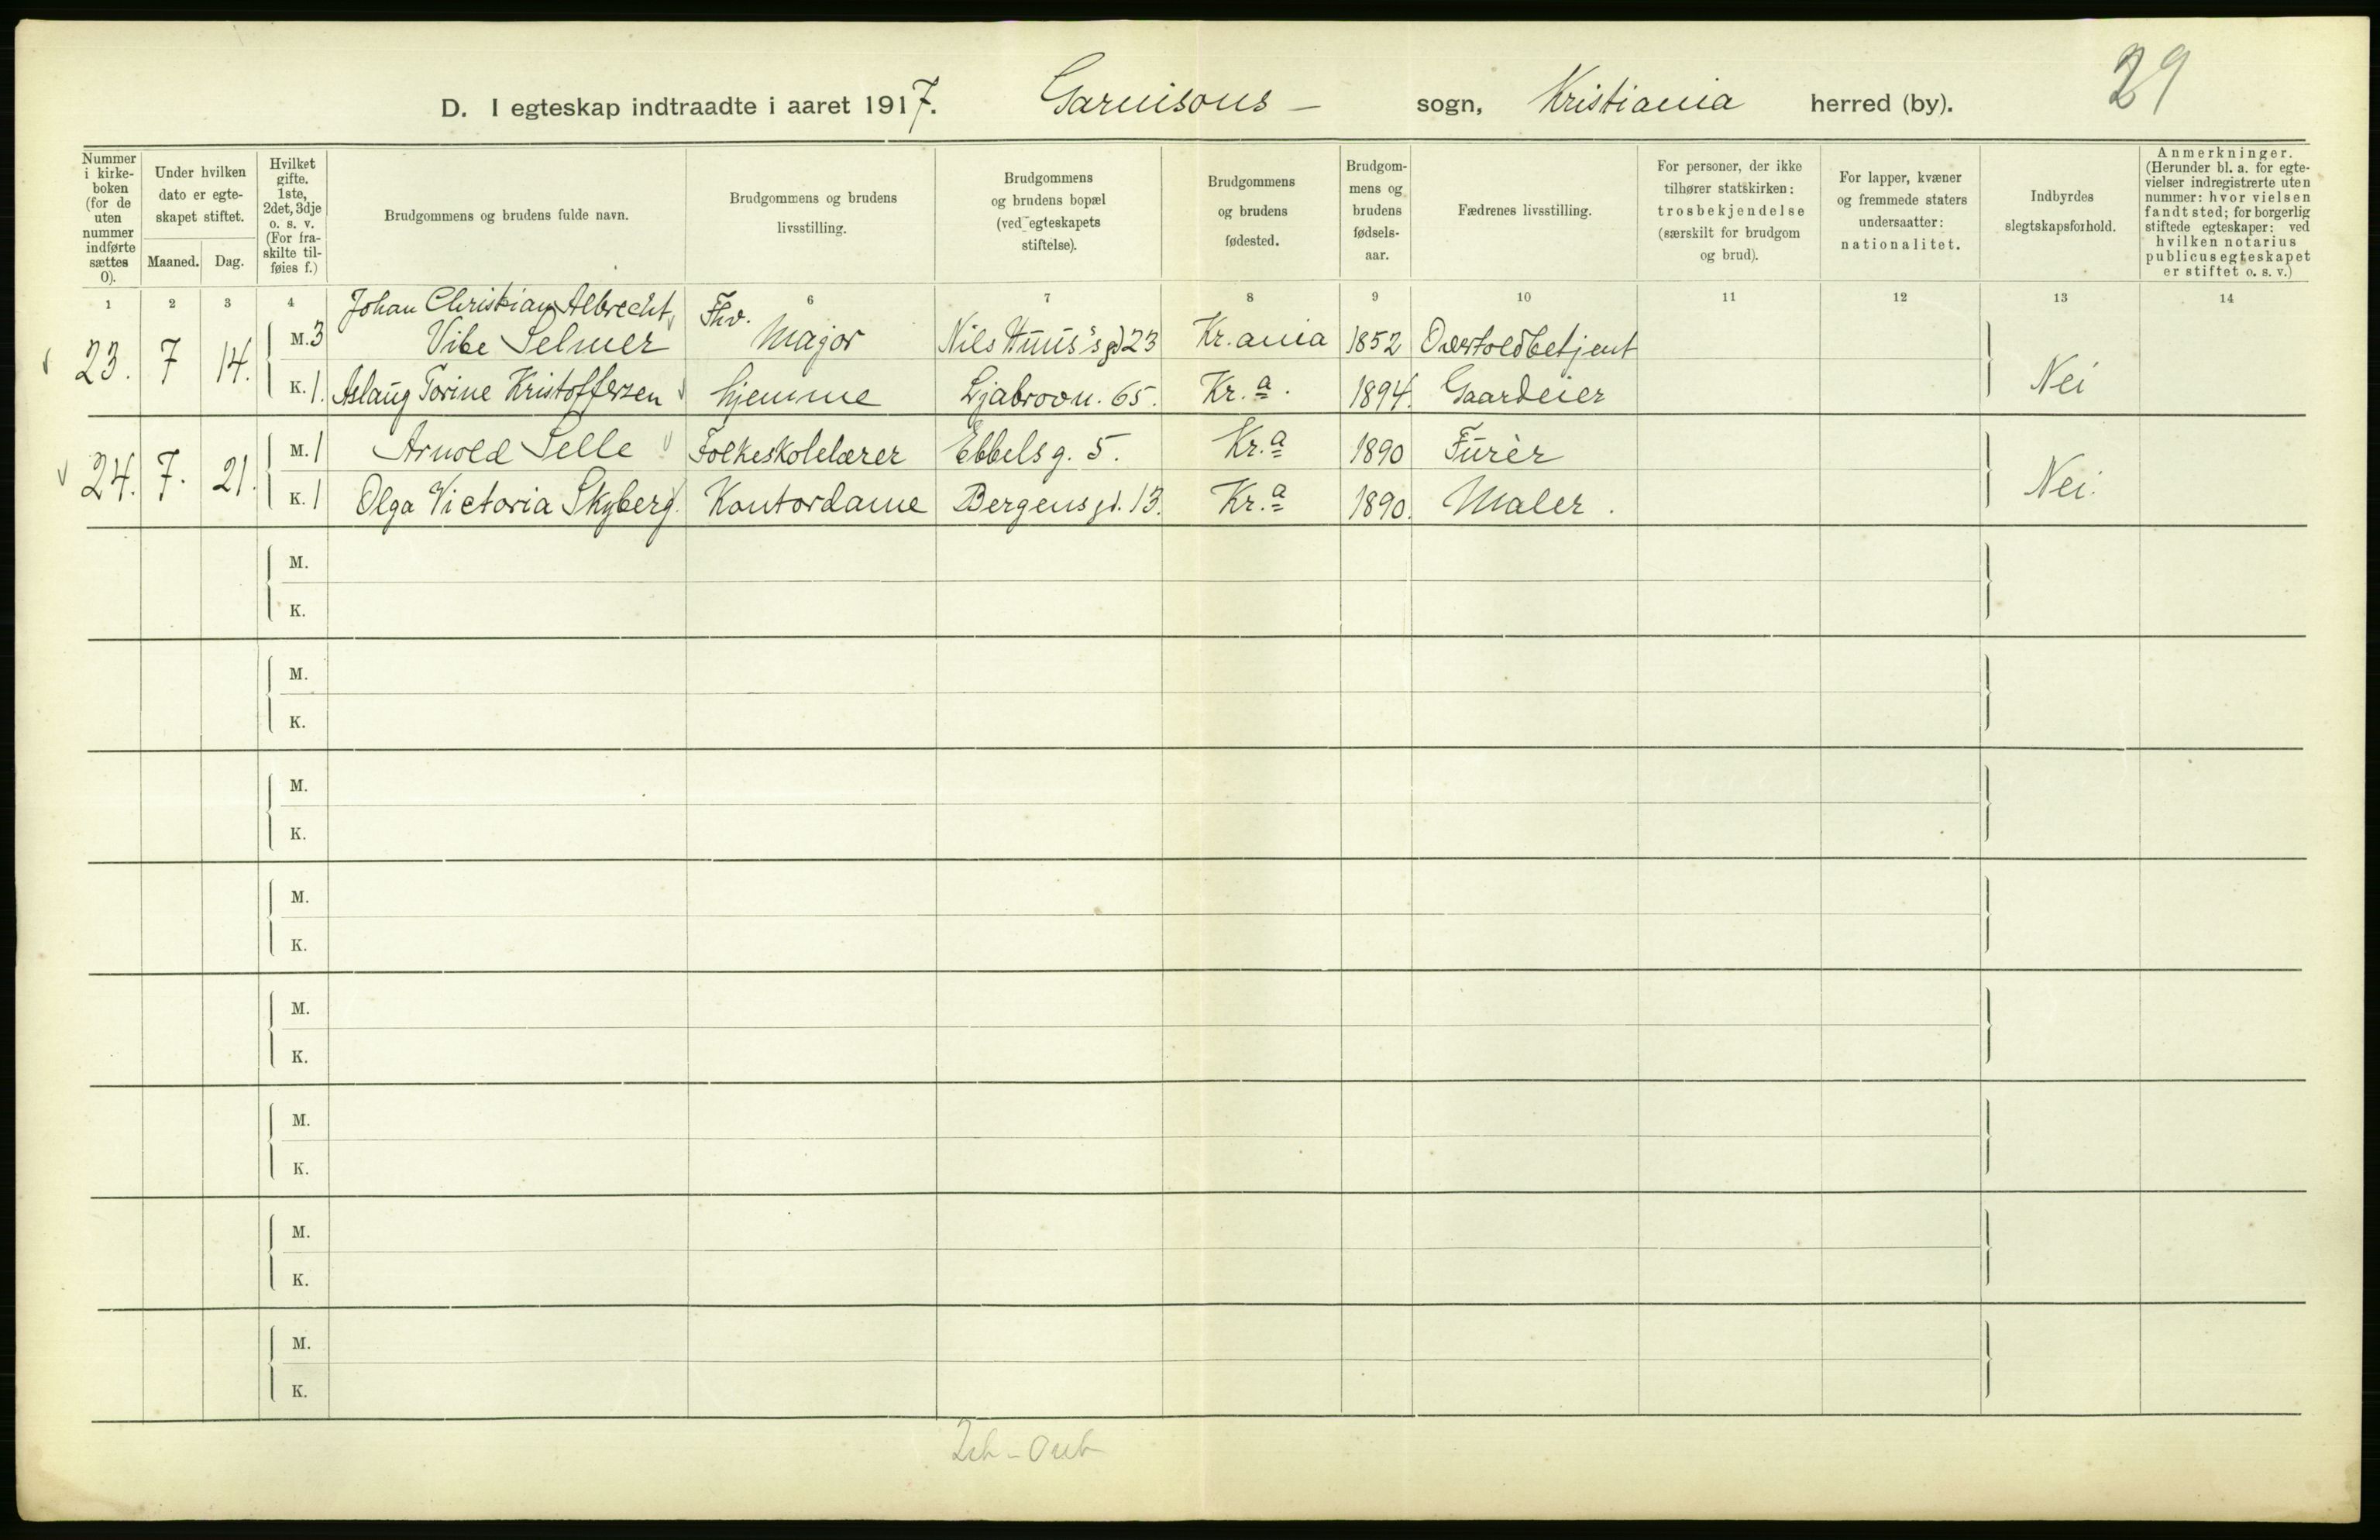 29
D. I egteskap indtraadte i aaret 1917. Garnisons – sogn, Kristiania herred (by).
Nummer i kirke-boken (for de uten nummer indførte sættes 0).
Under hvilken dato er egte-skapet stiftet.
Maaned. Dag.
Hvilket gifte. 1ste, 2det, 3dje o. s. v. (For fra-skilte til-føies f.)
Brudgommens og brudens fulde navn.
Brudgommens og brudens livsstilling.
Brudgommens og brudens bopæl (ved egteskapets stiftelse).
Brudgommens og brudens fødested.
Brudgom-mens og brudens fødsels-aar.
Fædrenes livsstilling.
For personer, der ikke tilhører statskirken: trosbekjendelse (særskilt for brudgom og brud).
For lapper, kvæner og fremmede staters undersaatter: nationalitet.
Indbyrdes slegtskapsforhold.
Anmerkninger. (Herunder bl. a. for egte-vielser indregistrerte uten nummer: hvor vielsen fandt sted; for borgerlig stiftede egteskaper: ved hvilken notarius publicus egteskapet er stiftet o. s. v.)
1 2 3 4 6 7 8 9 10 11 12 13 14
Johan Christian Albrecht Fhv.
23. 7 14. M. 3 Vibe Selmer Major Nils Huus's gd 23 Kr.ania 1852 Overtoldbetjent
K. 1. Aslaug Torine Kristoffersen hjemme Ljabrovn. 65. Kr.a. 1894. Gaardeier Nei
24. 7. 21. M. 1 Arnold Selle Folkeskolelærer Ebbels g. 5. Kr.a 1890 Furér
K. 1 Olga Victoria Skyberg. Kontordame Bergens gd. 13. Kr.a 1890. Maler. Nei.
M.
K.
M.
K.
M.
K.
M.
K.
M.
K.
M.
K.
M.
K.
M.
K.